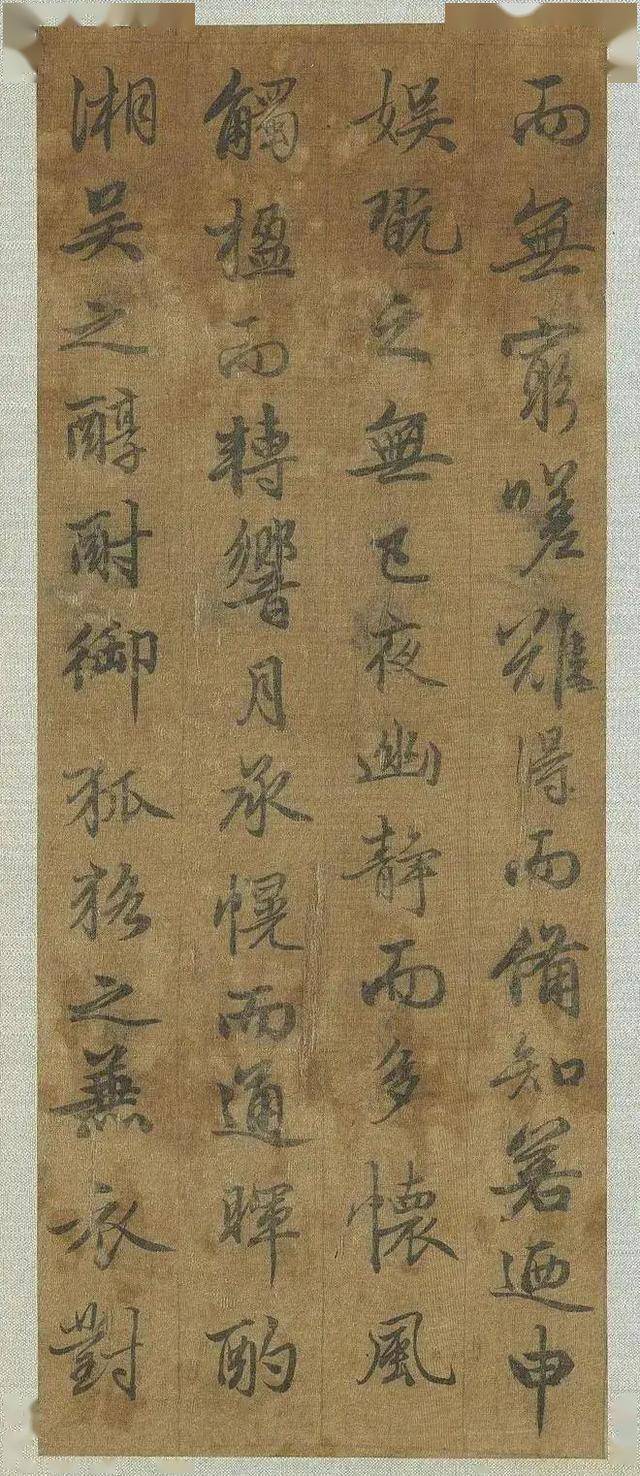 而無窮嗟難得而備知若迺申
娯翫之無已夜幽静而多懷風
觸楹而轉響月承幌而通暉酌
湘吴之醇酎御狐狢之兼衣對